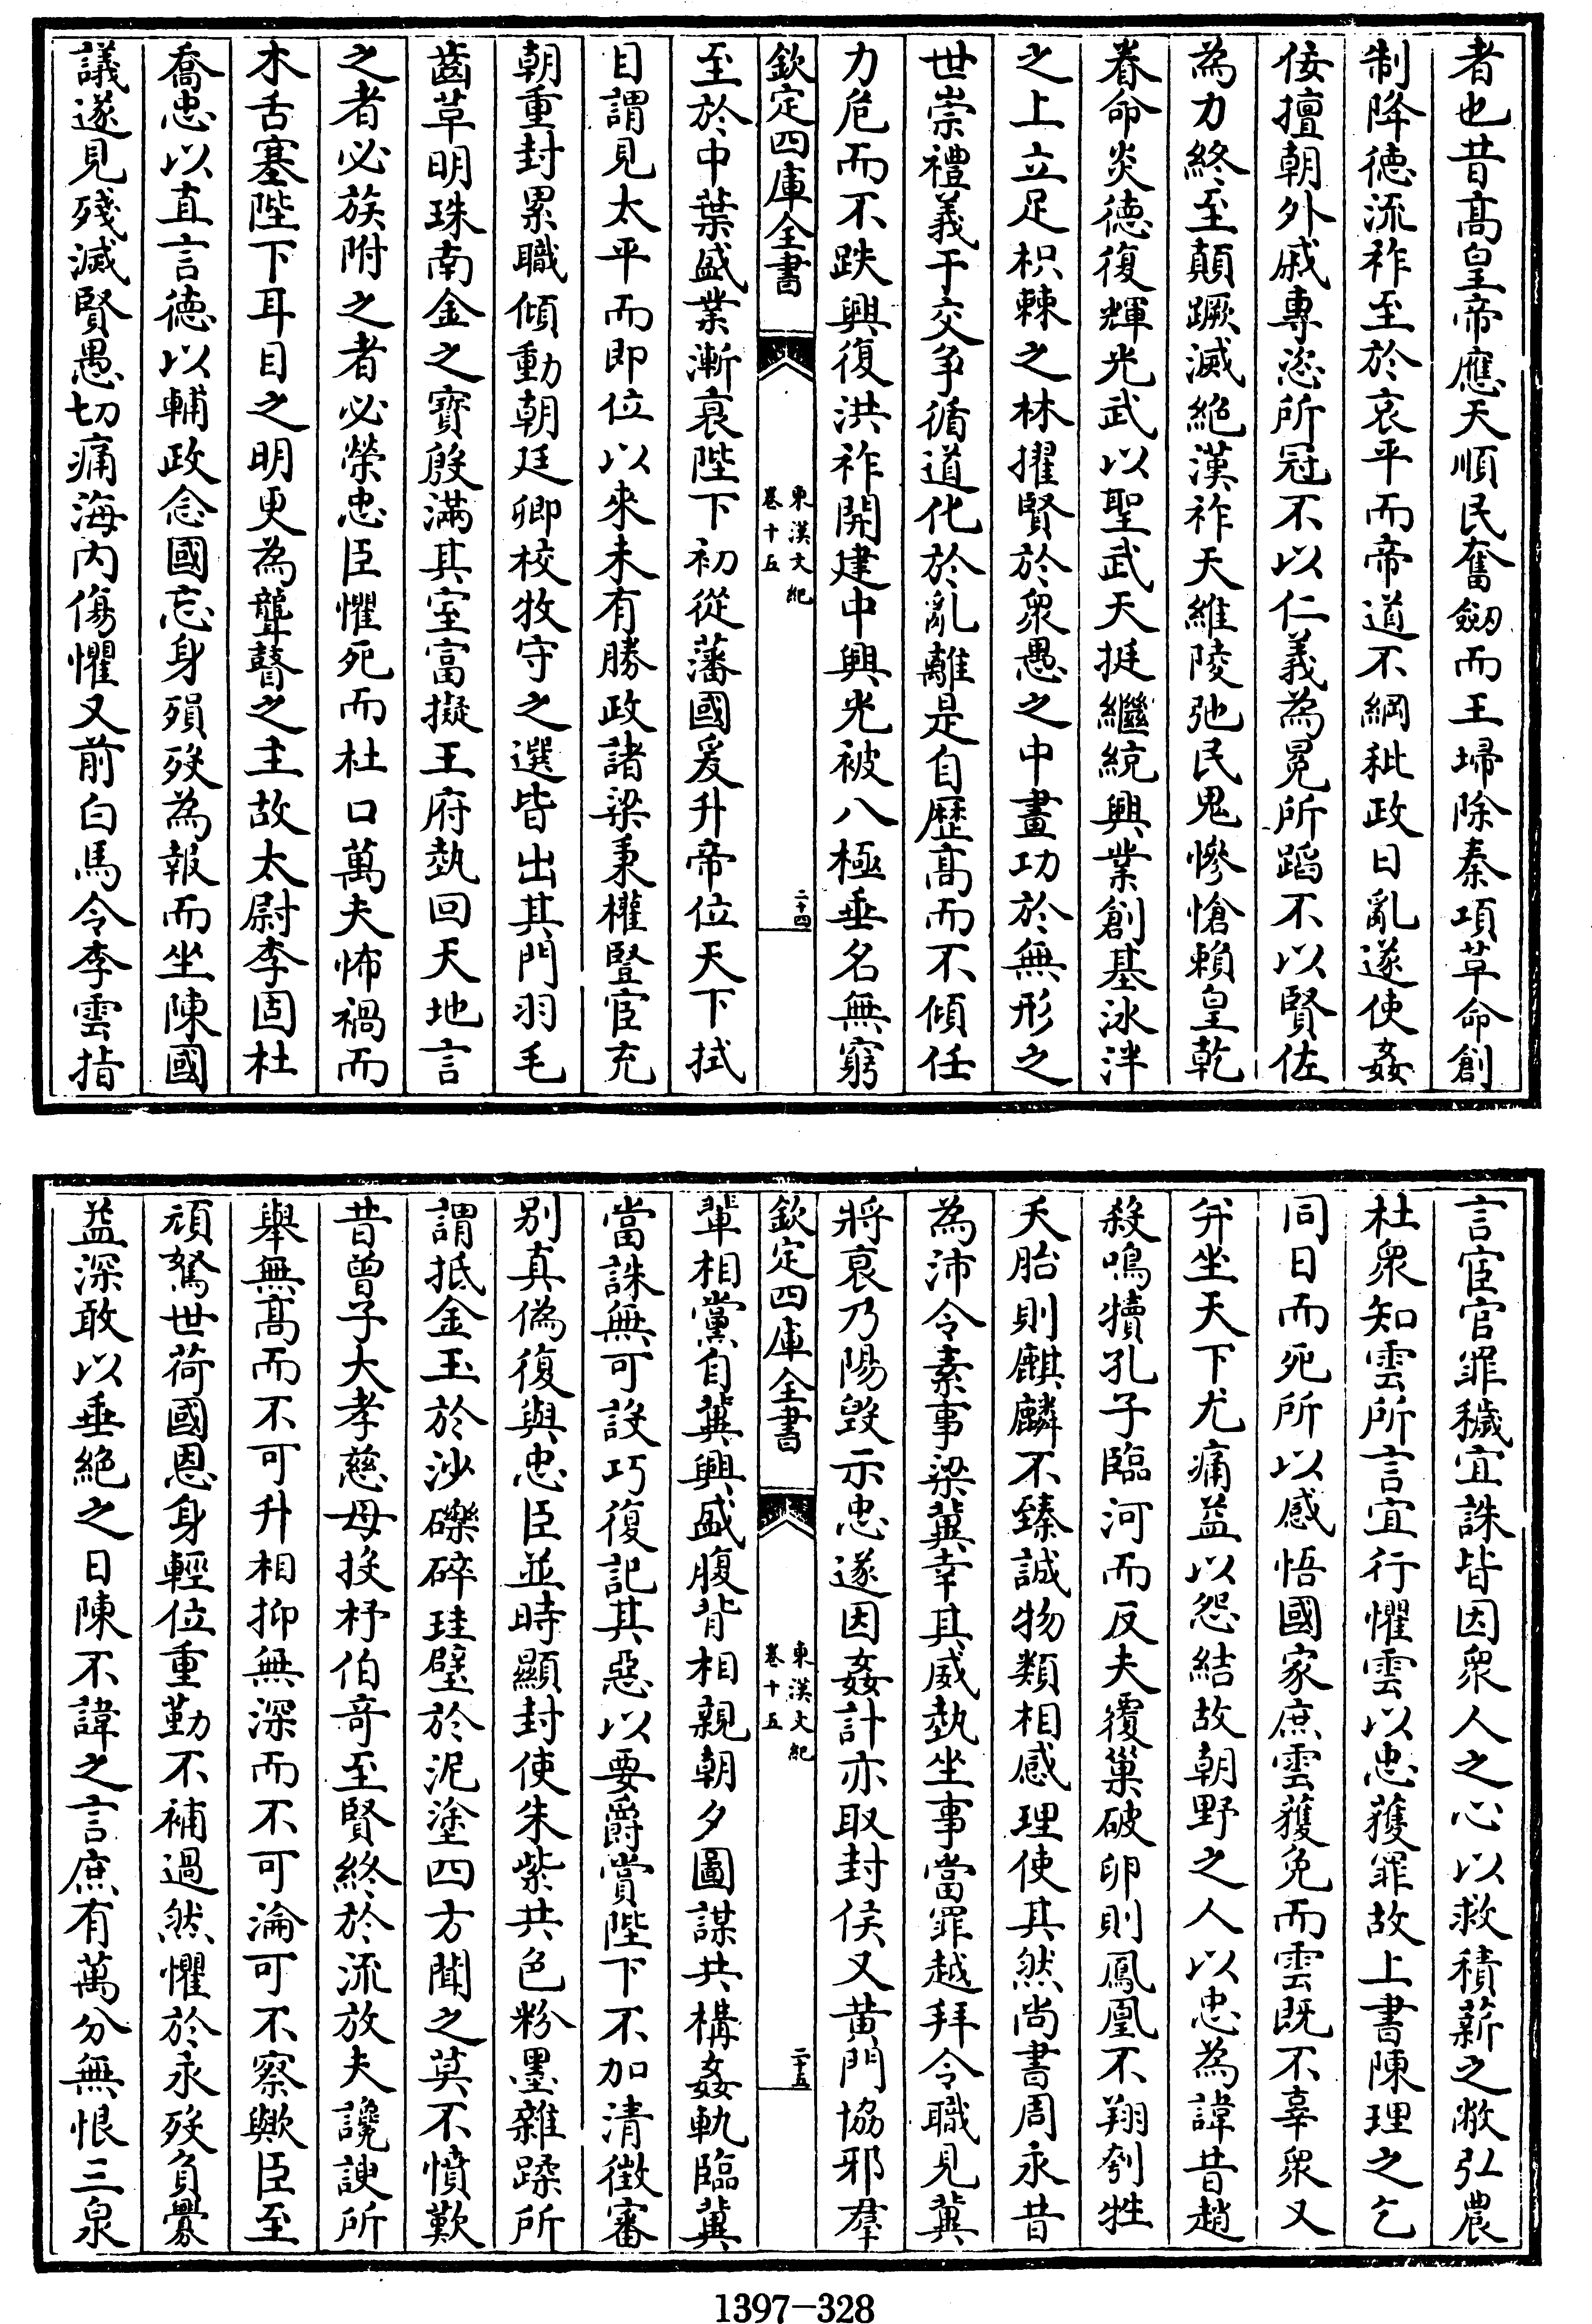 者也昔髙皇帝應天順民奮劒而王埽除秦項革命創
制降徳流祚至於哀平而帝道不綱秕政日亂遂使姦
佞擅朝外戚專恣所冠不以仁義為冕所蹈不以賢佐
為力終至顛蹶滅絶漢祚天維陵弛民鬼慘愴賴皇乾
眷命炎徳復輝光武以聖武天挺繼統興業創基冰泮
之上立足枳棘之林擢賢於衆愚之中畫功於無形之
世崇禮義于交爭循道化於亂離是自歴髙而不傾任
力危而不跌興復洪祚開建中興光被八極垂名無窮
欽定四庫全書
東漢文紀
卷十五
二十四
至於中葉盛業漸衰陛下初從藩國爰升帝位天下拭
目謂見太平而即位以來未有勝政諸梁秉權豎宦充
朝重封累職傾動朝廷卿校牧守之選皆出其門羽毛
齒草明珠南金之寶殷滿其室富擬王府埶回天地言
之者必族附之者必榮忠臣懼死而杜口萬夫怖禍而
木舌塞陛下耳目之明更為聾瞽之主故太尉李固杜
喬忠以直言徳以輔政念國忘身殞歿為報而坐陳國
議遂見殘滅賢愚切痛海内傷懼又前白馬令李雲指
言宦官罪穢宜誅皆因衆人之心以救積薪之敝弘農
杜衆知雲所言宜行懼雲以忠獲罪故上書陳理之乞
同日而死所以感悟國家庶雲獲免而雲既不辜衆又
并坐天下尤痛益以怨結故朝野之人以忠為諱昔趙
殺鳴犢孔子臨河而反夫覆巢破卵則鳳凰不翔刳牲
夭胎則麒麟不臻誠物類相感理使其然尚書周永昔
為沛令素事梁冀幸其威埶坐事當罪越拜令職見冀
將衰乃陽毁示忠遂因姦計亦取封侯又黄門協邪羣
欽定四庫全書
東漢文紀
卷十五
二十五
輩相黨自冀興盛腹背相親朝夕圖謀共構姦軌臨冀
當誅無可設巧復記其惡以要爵賞陛下不加清徴審
别真偽復與忠臣並時顯封使朱紫共色粉墨雜蹂所
謂抵金玉於沙礫碎珪璧於泥塗四方聞之莫不憤歎
昔曾子大孝慈母投杼伯竒至賢終於流放夫讒諛所
舉無髙而不可升相抑無深而不可淪可不察歟臣至
頑駑世荷國恩身輕位重勤不補過然懼於永歿負舋
益深敢以垂絶之日陳不諱之言庶有萬分無恨三泉
1397-328